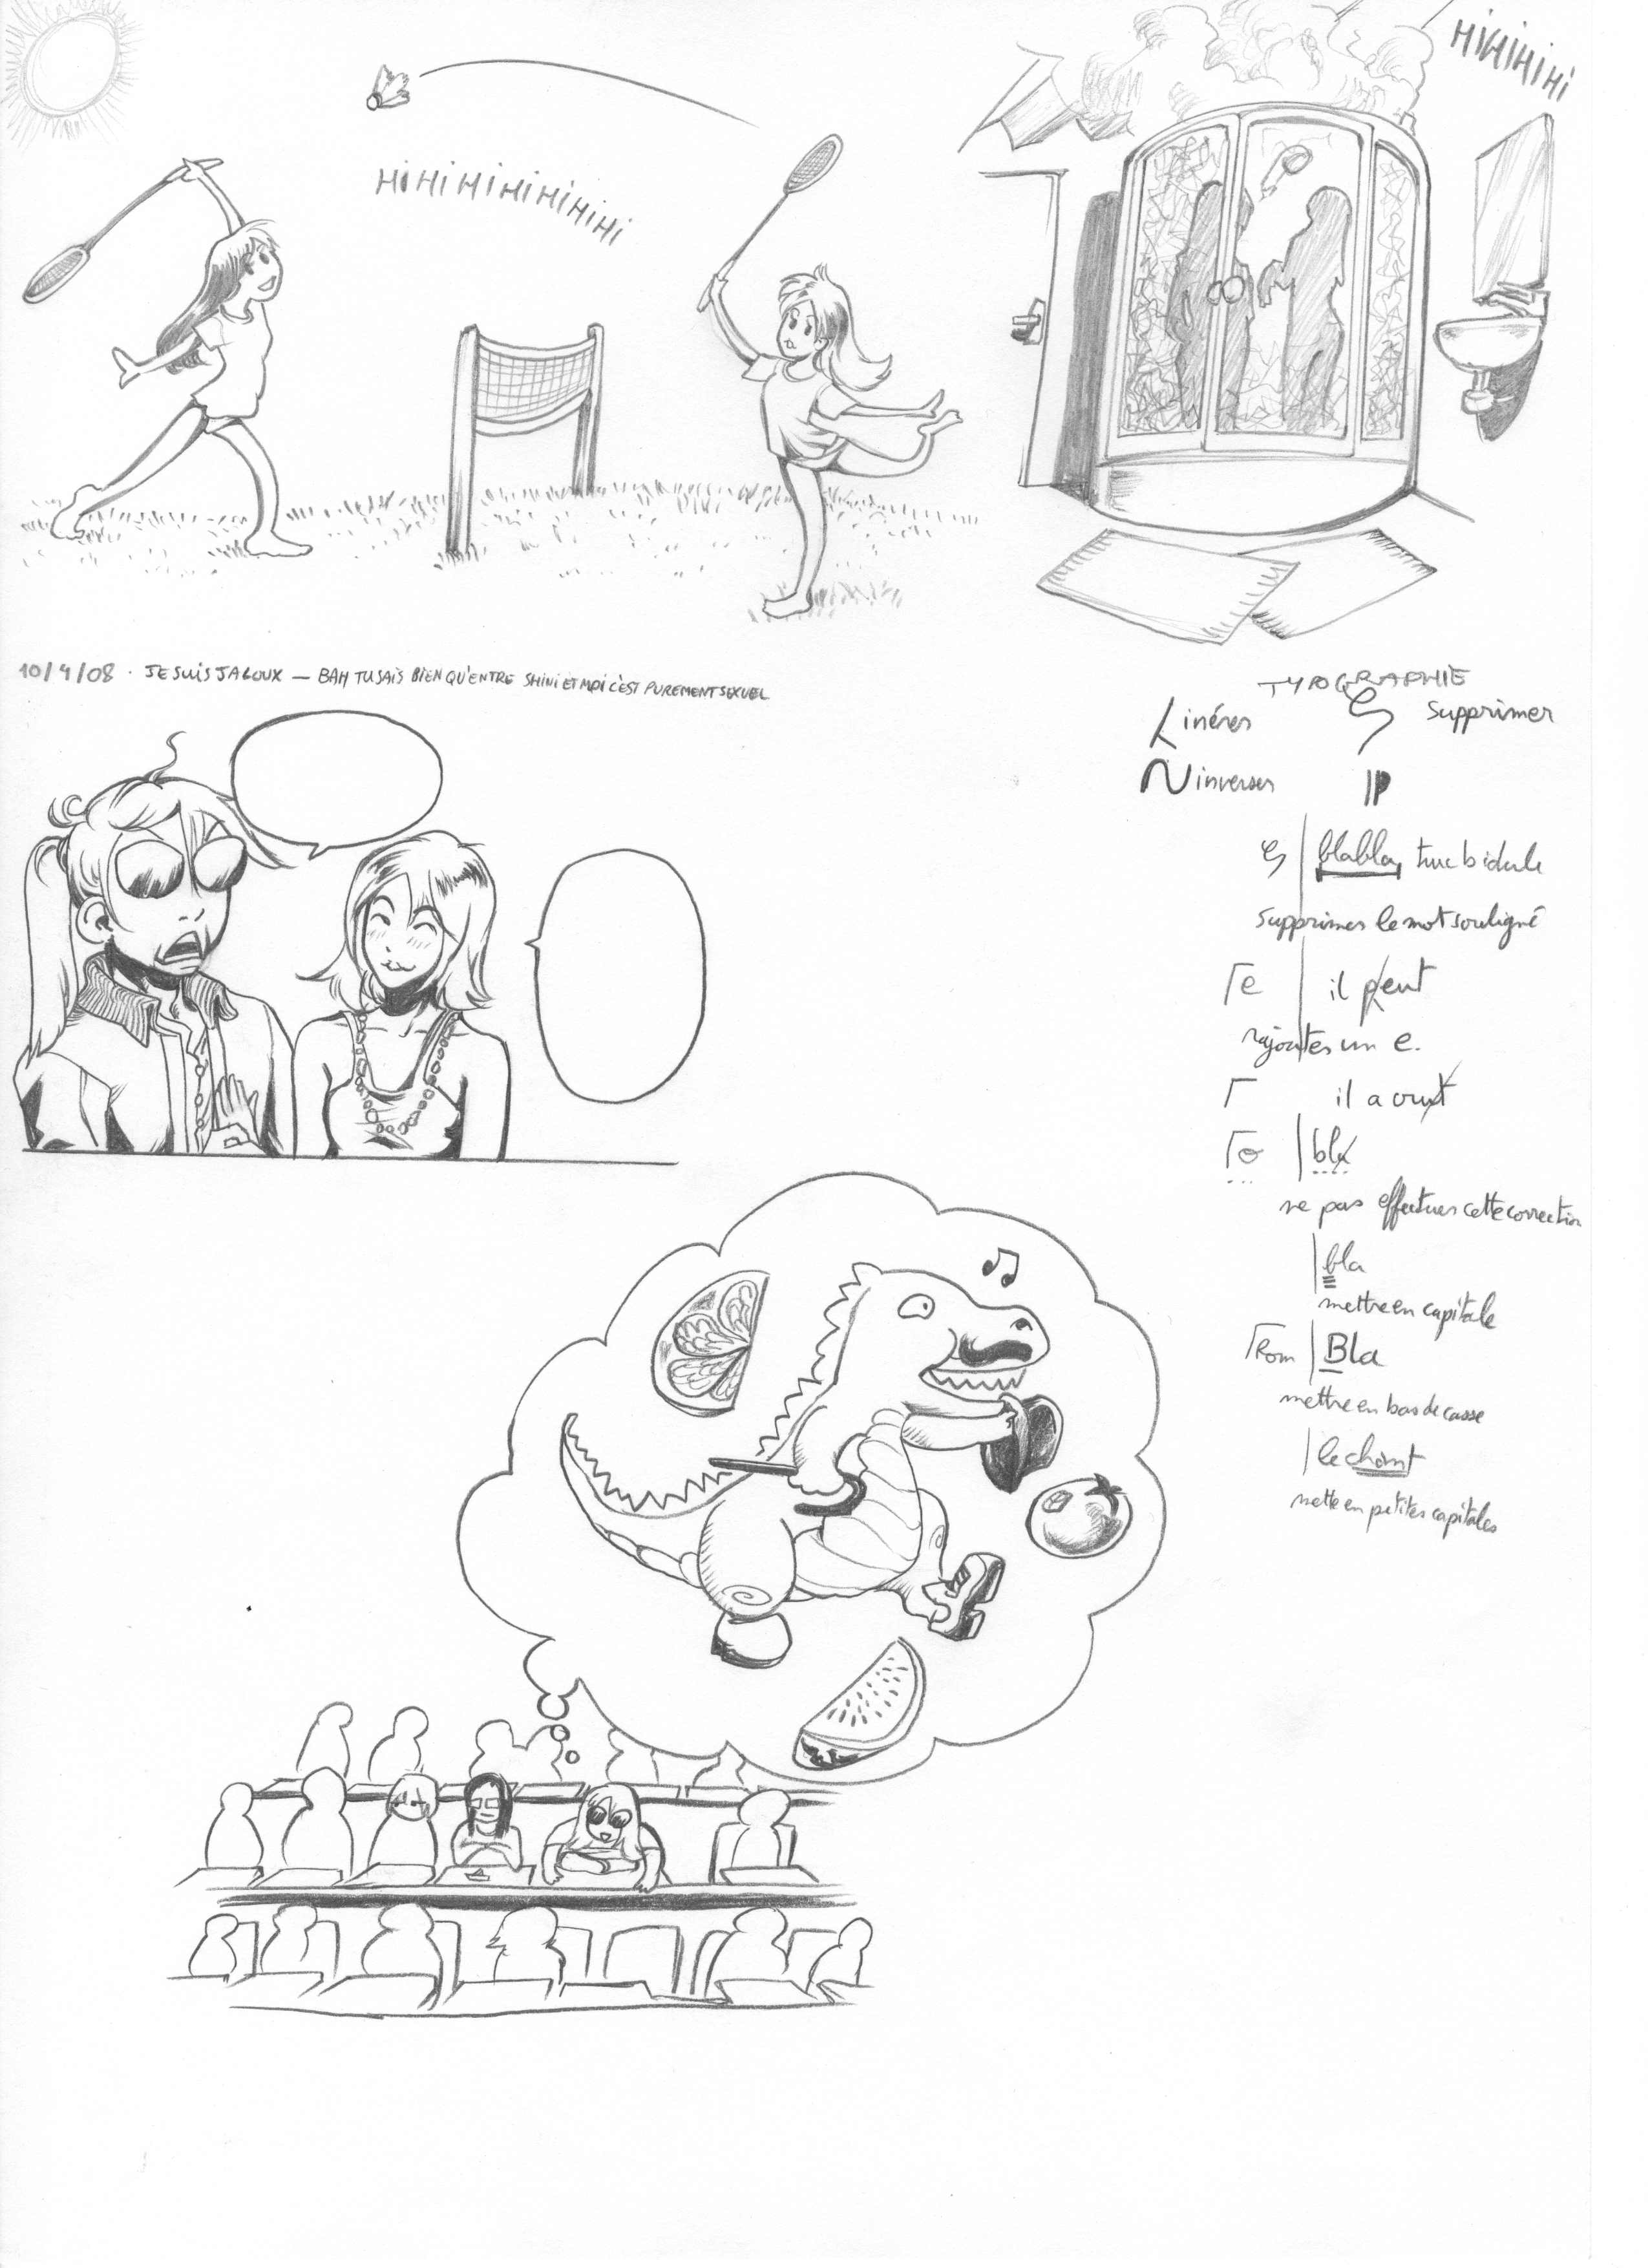 HiHiHiHi
HiHiHiHiHiHiHiHi
10/4/08 . JE SUIS JALOUX — BAH TU SAIS BIEN QU'ENTRE SHINI ET MOI C'EST PUREMENT SEXUEL
TYPOGRAPHIE
insérer supprimer
inverser
blabla truc bidule
supprimer le mot souligné
e il peut
rajouter un e.
il a crut
o bla
ne pas effectuer cette correction
bla
mettre en capitale
Rom Bla
mettre en bas de casse
le chant
mettre en petites capitales